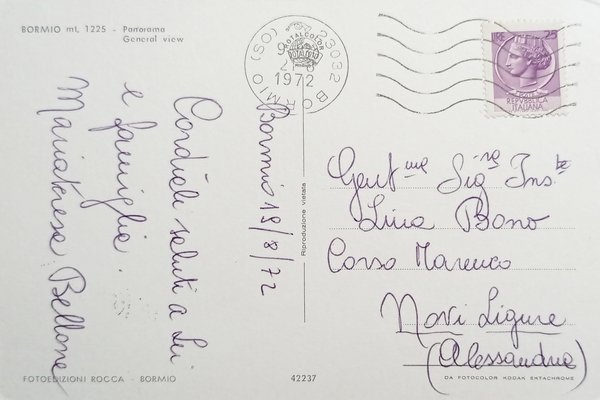 BORMIO mt. 1225 - Panorama
General view
23032 BORMIO (SO)
1972
25
REPVBBLICA
ITALIANA
Cordiali saluti a Lei
e famiglia.
Mariateresa Bellone
Bormio 19/8/72
Riproduzione vietata
Gent.ma Sig.na Ins.te
Lina Bono
Corso Marenco
Novi Ligure
(Alessandria)
FOTOEDIZIONI ROCCA - BORMIO
42237
DA FOTOCOLOR KODAK EKTACHROME